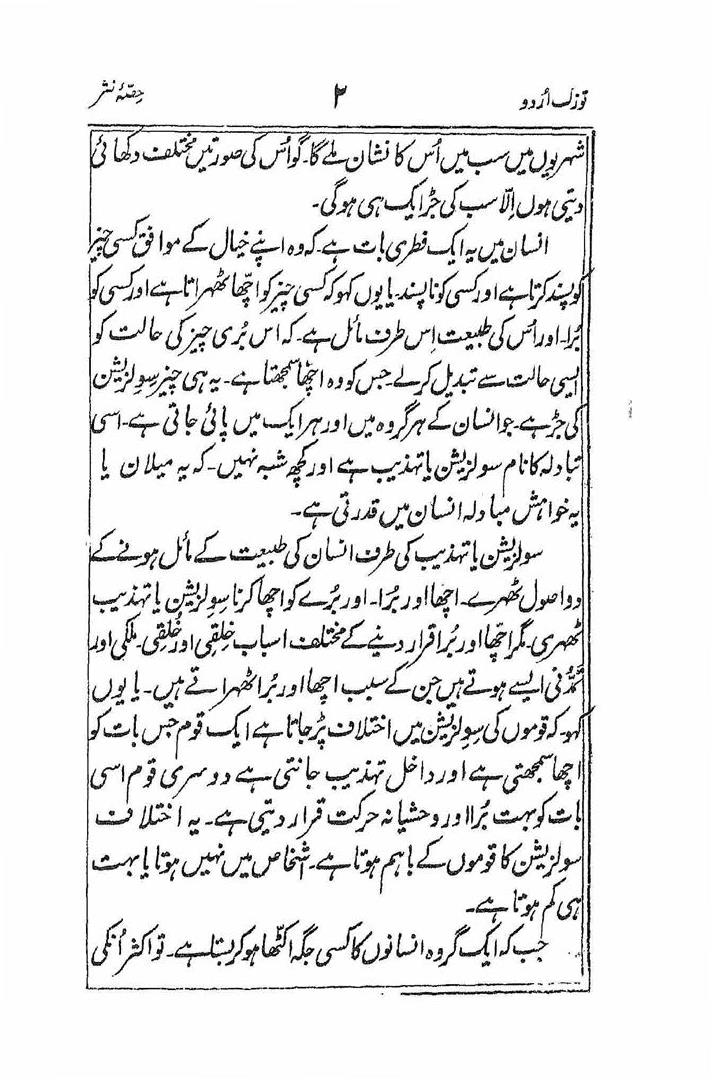 توزک اُردو ۲ حِصّۂ نثر
شہریوں میں سب میں اُس کا نشان ملے گا۔ گو اُس کی صورتیں مختلف دکھائی
دیتی ہوں اِلّا سب کی جڑ ایک ہی ہوگی۔
انسان میں یہ ایک فطری بات ہے۔ کہ وہ اپنے خیال کے موافق کسی چیز
کو پسند کرتا ہے اور کسی کو ناپسند۔ یا یوں کہو کہ کسی چیز کو اچّھا ٹھہراتا ہے اور کسی کو
بُرا۔ اور اُس کی طبیعت اِس طرف مائل ہے۔ کہ اس بُری چیز کی حالت کو
ایسی حالت سے تبدیل کر لے۔ جس کو وہ اچّھا سمجھتا ہے۔ یہ ہی چیز سِولزیشن
کی جڑ ہے۔ جو انسان کے ہر گروہ میں اور ہر ایک میں پائی جاتی ہے۔ اسی
تبادلہ کا نام سولزیشن یا تہذیب ہے اور کچھ شبہ نہیں۔ کہ یہ میلان یا
یہ خواہش مبادلہ انسان میں قدرتی ہے۔
سولزیشن یا تہذیب کی طرف انسان کی طبیعت کے مائل ہونے کے
دو اصول ٹھہرے۔ اچھا اور بُرا۔ اور بُرے کو اچھا کرنا سِولزیشن یا تہذیب
ٹھہری۔ مگر اچّھا اور بُرا قرار دینے کے مختلف اسباب خِلقی اور خُلقی۔ ملکی اور
تمدّنی ایسے ہوتے ہیں جن کے سبب اچھا اور بُرا ٹھہراتے ہیں۔ یا یوں
کہو۔ کہ قوموں کی سِولزیشن میں اختلاف پڑ جاتا ہے ایک قوم جس بات کو
اچھا سمجھتی ہے اور داخل تہذیب جانتی ہے دوسری قوم اسی
بات کو بہت بُرا اور وحشیانہ حرکت قرار دیتی ہے۔ یہ اختلاف
سولزیشن کا قوموں کے باہم ہوتا ہے۔ اشخاص میں نہیں ہوتا یا بہت
ہی کم ہوتا ہے۔
جب کہ ایک گروہ انسانوں کا کسی جگہ اکٹّھا ہو کر بستا ہے۔ تو اکثر اُنکی